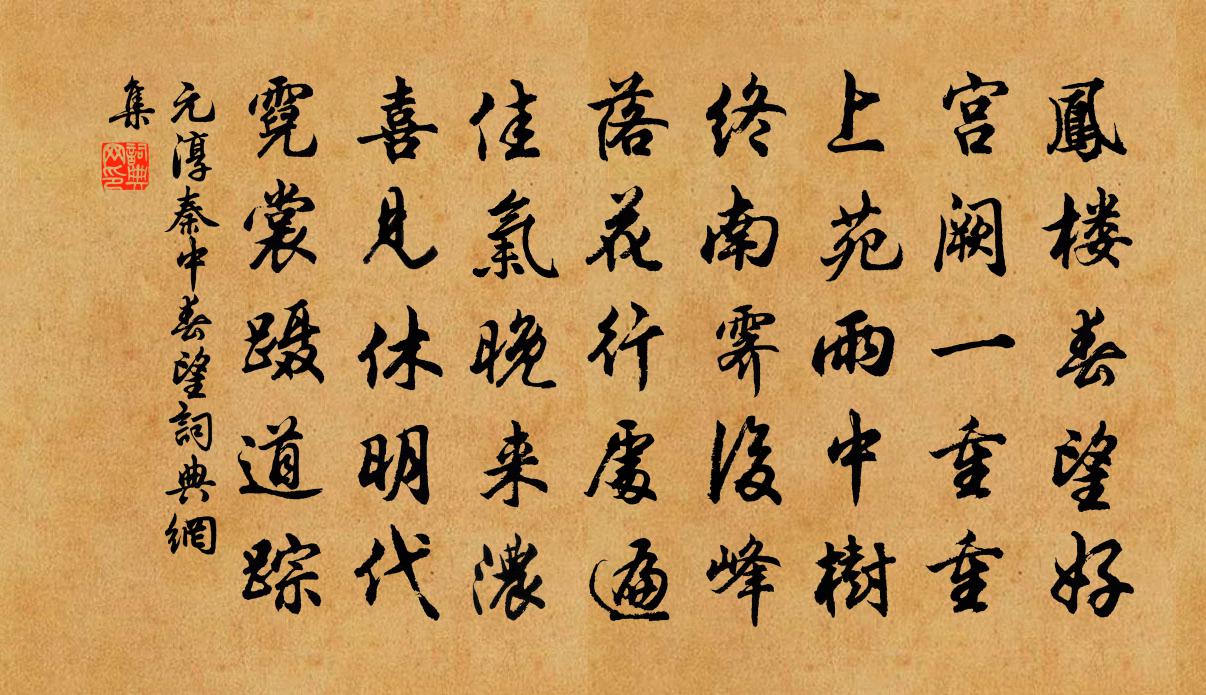 鳳楼春望好
宫阙一重重
上苑雨中樹
终南霽後峰
落花行處遍
佳氣晚来濃
喜見休明代
霓裳躡道踪
元淳秦中春望詞典網
集
詞典网印